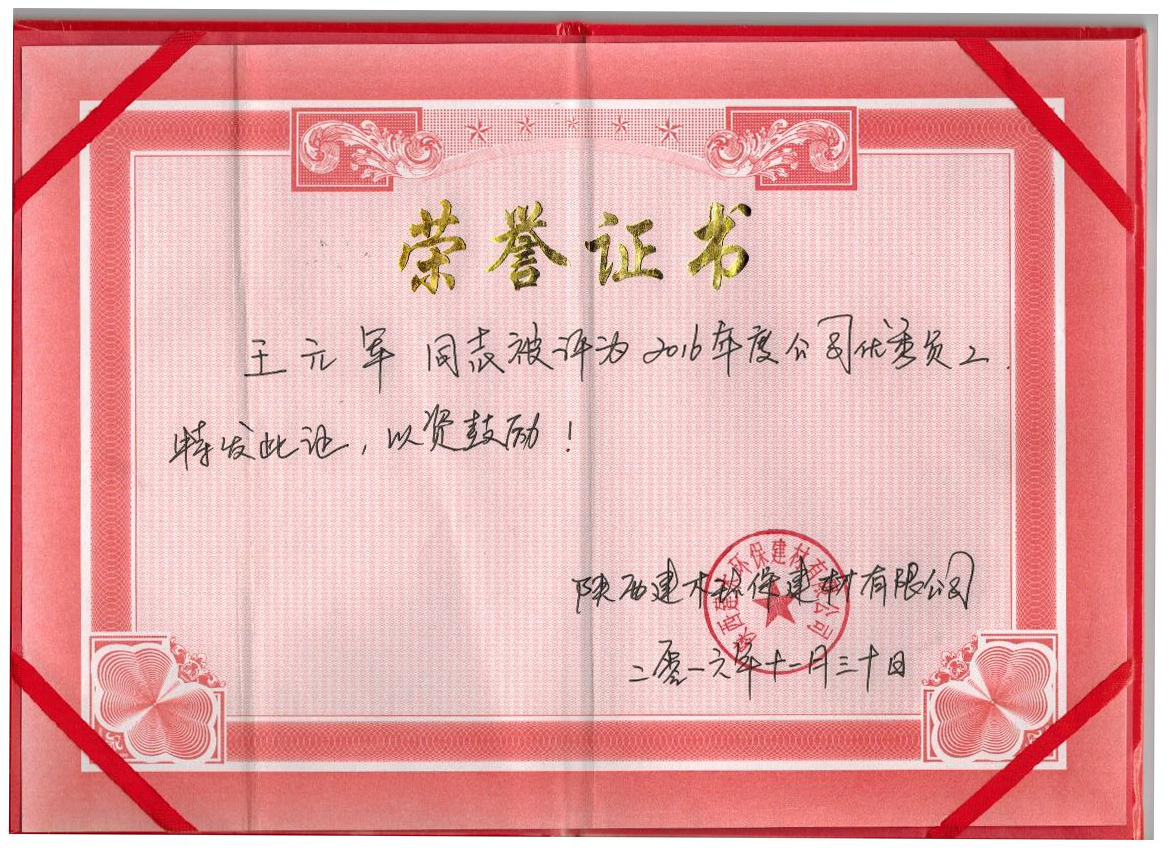 荣誉证书
王元军 同志被评为2016年度公司优秀员工.
特发此证，以资鼓励！
陕西建木环保建材有限公司
陕西建木环保建材有限公司
二零一六年十一月三十日